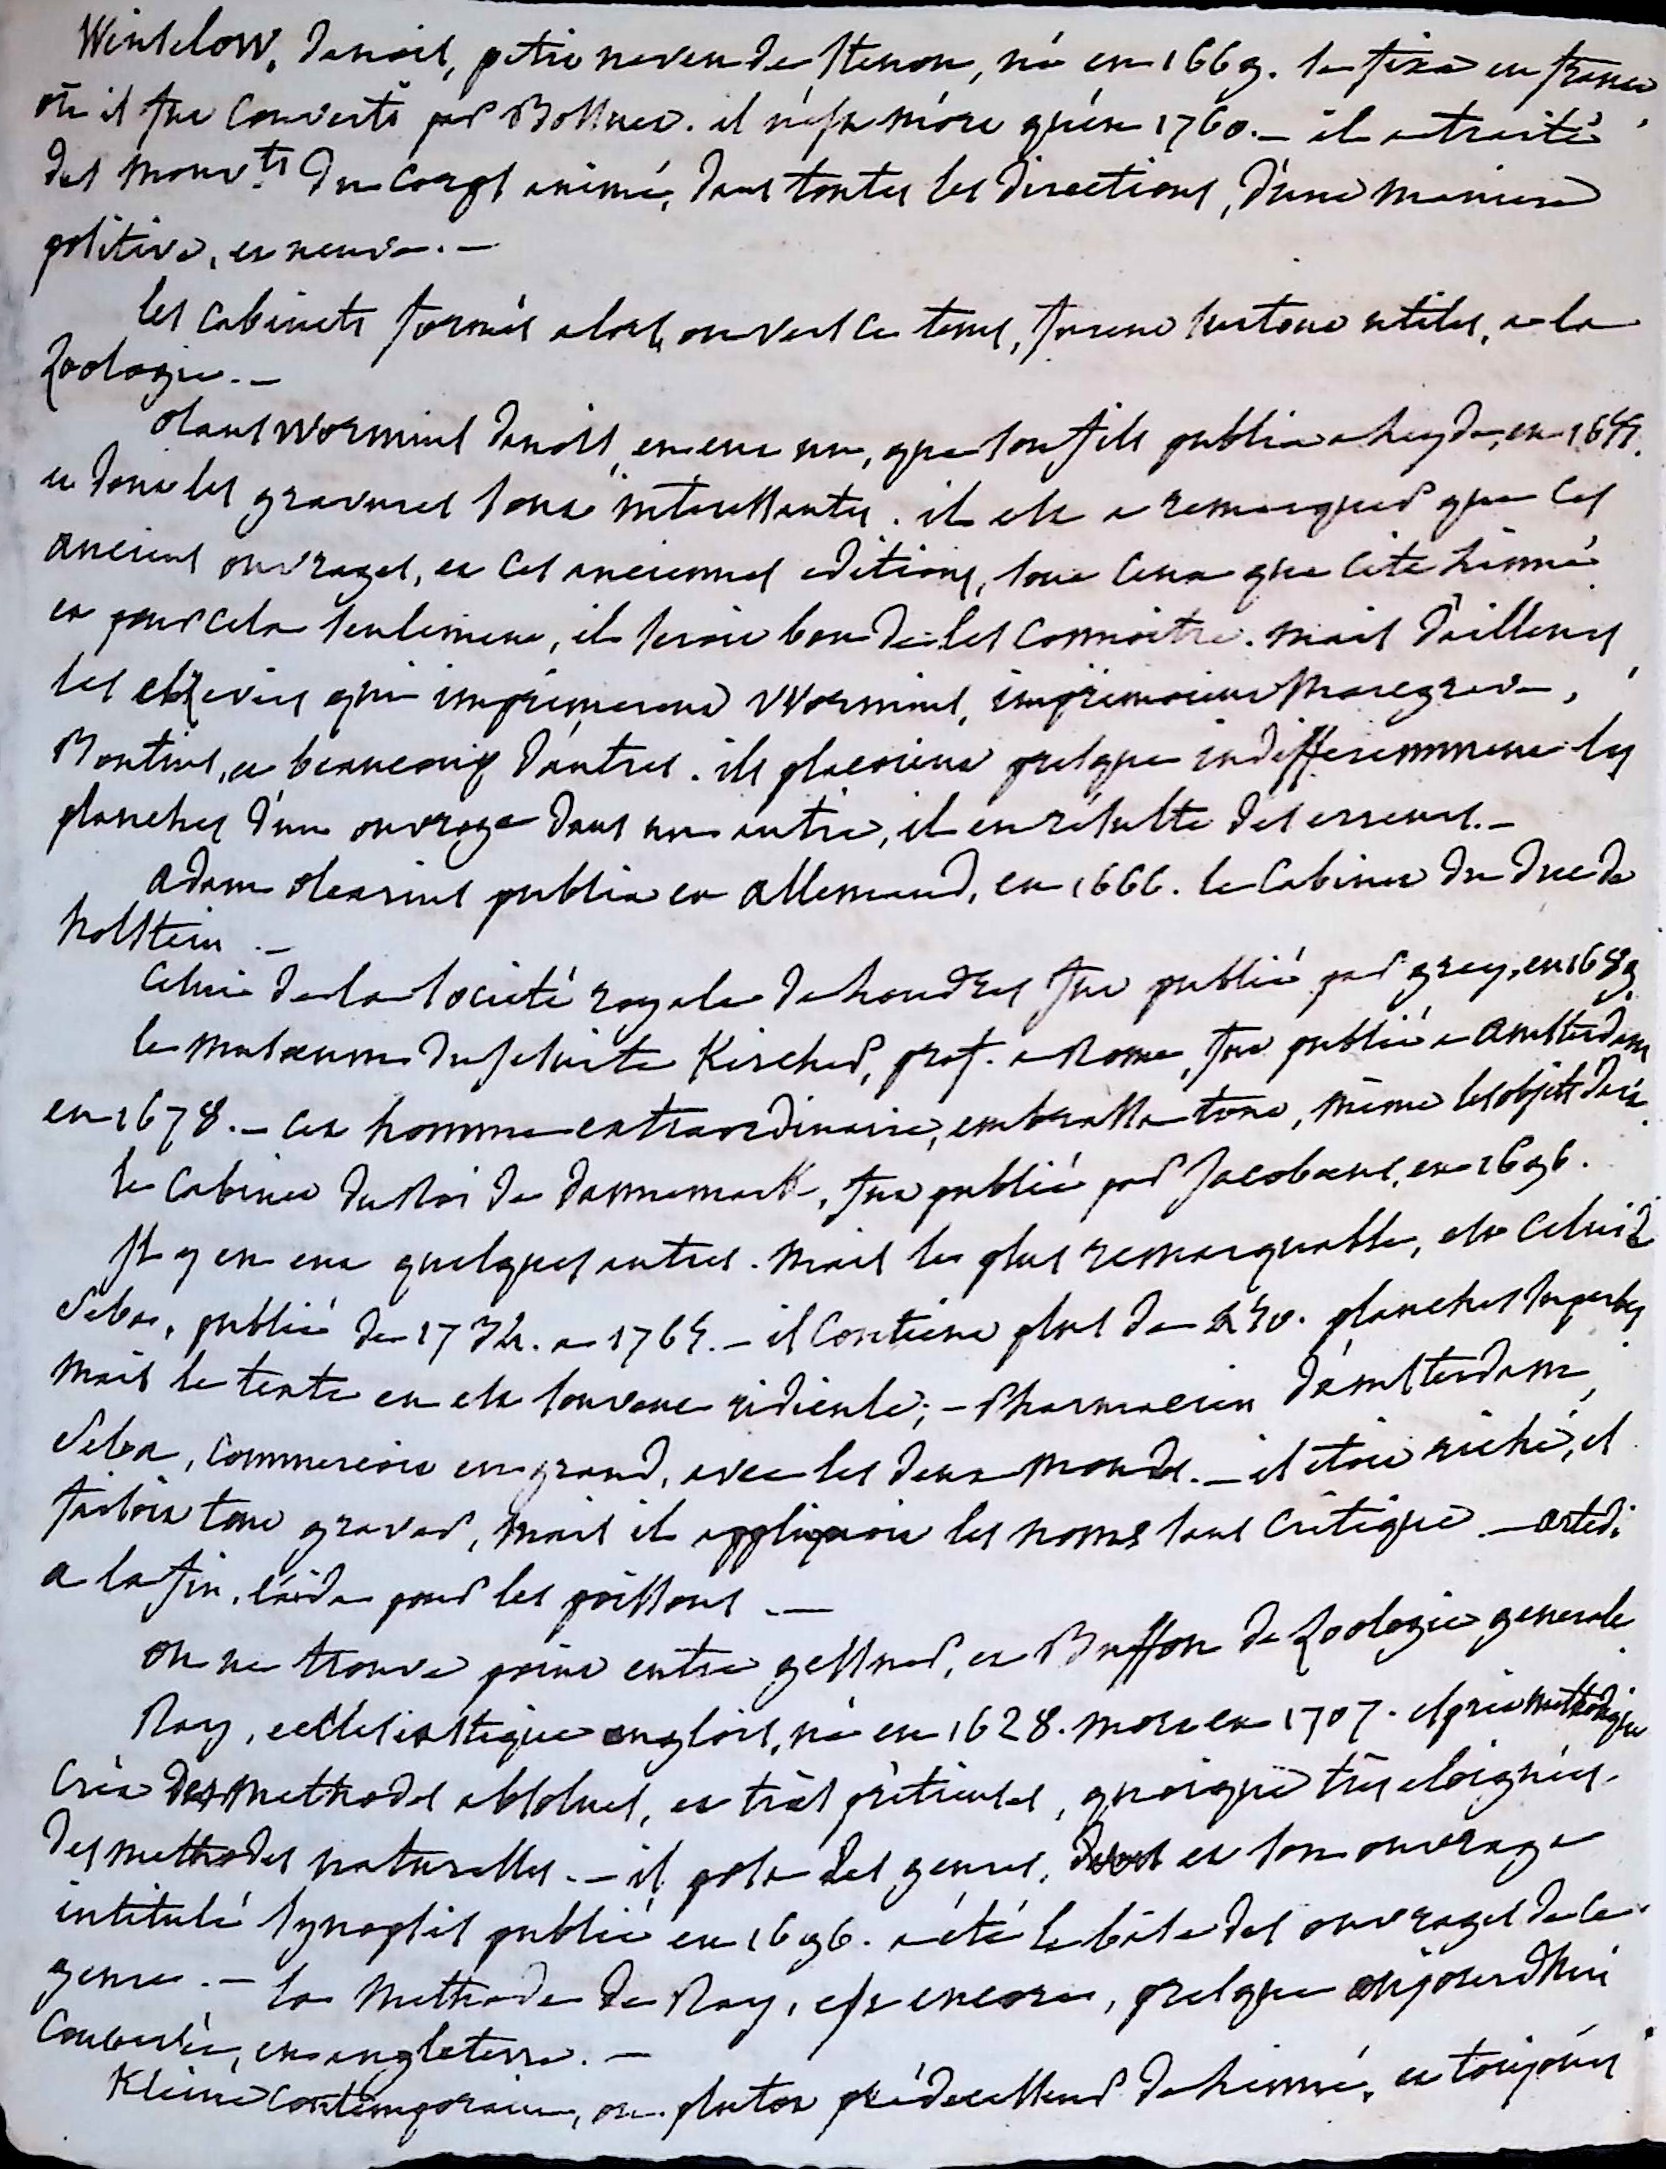 Winselow, danois, petit neveu de stenon, né en 1669. se fixa en france,
où il fut converti par Bossuet. il n'est mort qu'en 1760. — il a traité
des mouv.ts du corps animé, dans toutes les directions, d'une maniere
positive, et neuve. —
les cabinets formés alors, ou vers ce tems, furent surtout utiles, a la
Zoologie. —
olaus wormius danois, en eut un, que son fils publia a leyde, en 1655.
et dont les gravures sont interessantes. il est a remarquer que ces
anciens ouvrages, et ces anciennes editions, sont ceux que cite linné
et pour cela seulement, il seroit bon de les connoitre. mais d'ailleurs
les elzevirs qui imprimerent Wormius, imprimoient Marcgrave,
Bontius, et beaucoup d'autres. ils placoient presque indifferemment les
planches d'un ouvrage dans un autre, il en résulte des erreurs. —
adam olearius publia en allemand, en 1666. le cabinet du duc de
holstein. —
Celui de la société royale de londres fut publié par grey, en 1689
le musaeum du jesuite Kircher, prof. a Rome, fut publié a amsterdam
en 1678. — cet homme extraordinaire, embrassa tout, même les objets d'art.
le cabinet du Roi de dannemark, fut publié par Jacobaeus, en 1696.
Il y en eut quelques autres. mais le plus remarquable, est celui de
Seba, publié de 1734. a 1765. — il contient plus de 450. planches superbes
mais le texte en est souvent ridicule; — Pharmacien d'amsterdam,
Seba, commercoit en grand, avec les deux mondes. — il etoit riche, il
faisoit tout graver, mais il appliquoit les noms sans critique. — artedi
a la fin, l'aida pour les poissons. —
on ne trouve point entre gessner, et Buffon de Zoologie generale
Ray, ecclesiastique anglois, né en 1628. mort en 1707. esprit methodique
créa des methodes absolues, et très précieuses, quoique très eloignées
des methodes naturelles. — il posa des genres, et son ouvrage
intitulé synopsis publié en 1696. a été la base des ouvrages de ce
genre. — la methode de Ray, est encore, presque aujourdhui
conservée, en angleterre. —
Klein contemporain, ou plutot prédecesseur de linné, et toujours